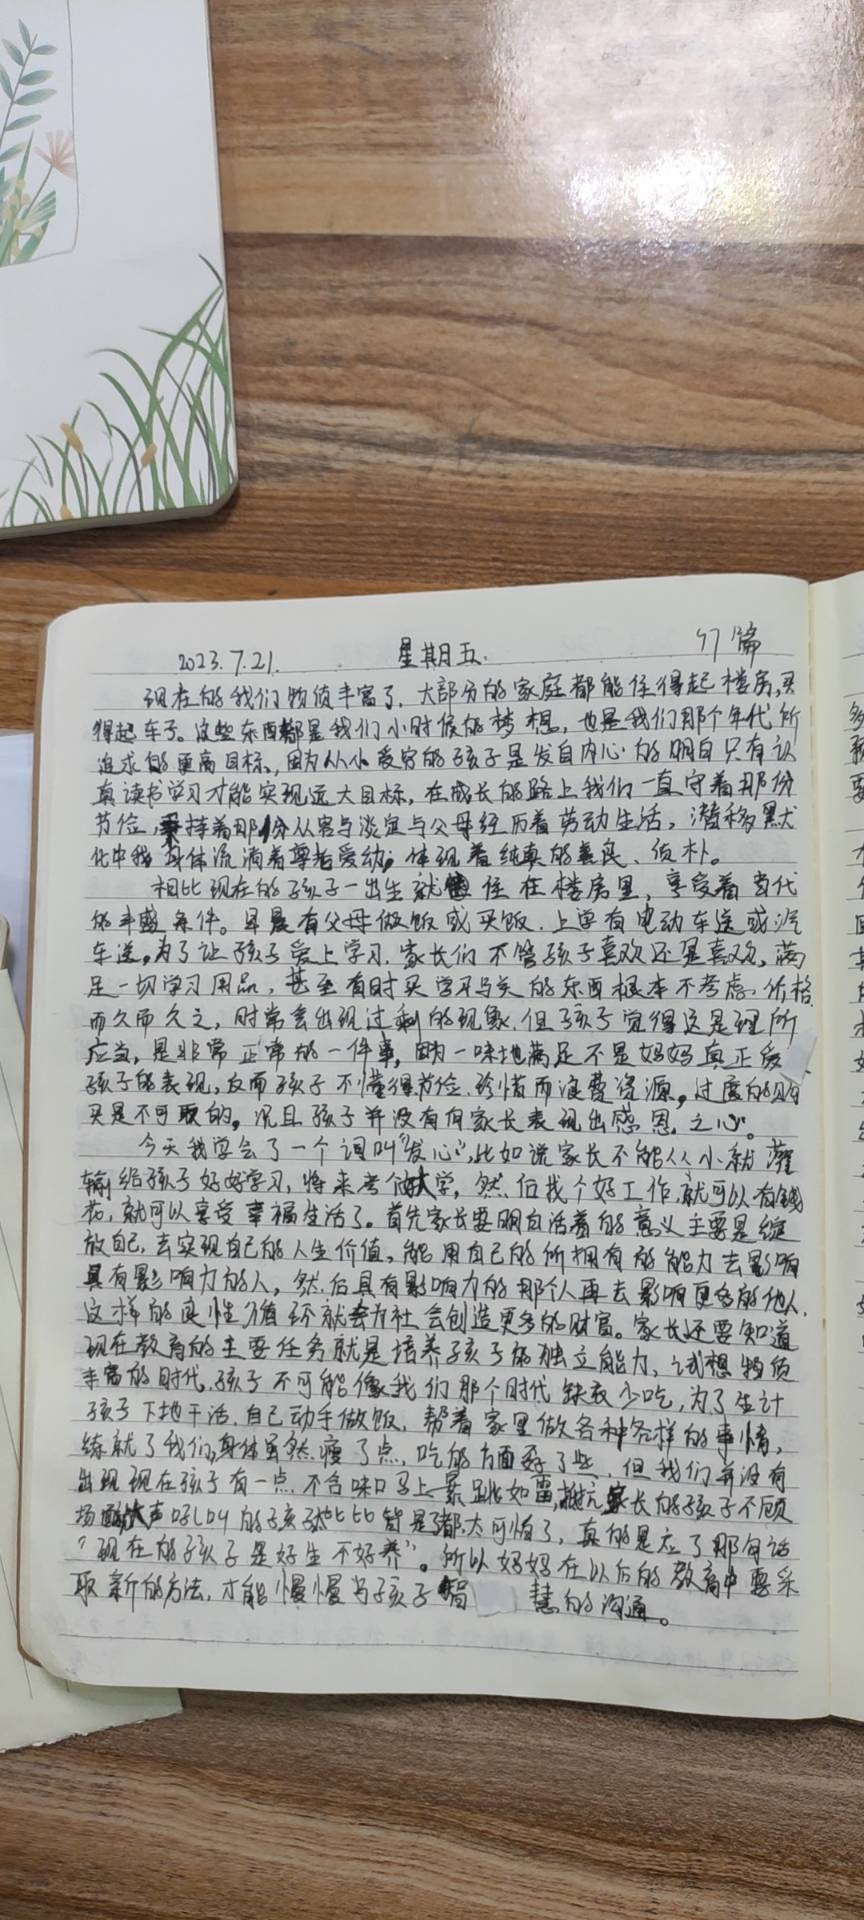 2023.7.21. 星期五. 篇
现在的我们物质丰富了，大部分的家庭都能住得起楼房，买
得起车子。这些东西都是我们小时候的梦想，也是我们那个年代所
追求的更高目标，因为从小爱穷的孩子是发自内心的明白只有认
真读书学习才能实现远大目标，在成长的路上我们一直守着那份
节俭，秉持着那份从容与淡定与父母经历着劳动生活，潜移默
化中我身体流淌着尊老爱幼，体现着纯真的善良、质朴。
相比现在的孩子一出生就住在楼房里，享受着当代
的丰盛条件。早晨有父母做饭或买饭，上学有电动车送或汽
车送，为了让孩子爱上学习，家长们不管孩子喜欢还是喜欢，满
足一切学习用品，甚至有时买学习与关的东西根本不考虑价格
而久而久之，时常会出现过剩的现象，但孩子觉得这是理所
应当，是非常正常的一件事，因为一味地满足不是妈妈真正爱
孩子的表现，反而孩子不懂得节俭、珍惜而浪费资源，过度的购
买是不可取的，况且孩子并没有向家长表现出感恩之心。
今天我学会了一个词叫“发心”，比如说家长不能从小就灌
输给孩子好好学习，将来考个大学，然后找个好工作，就可以有钱
花，就可以享受幸福生活了。首先家长要明白活着的意义主要是绽
放自己，去实现自己的人生价值，能用自己的所拥有的能力去影响
具有影响力的人，然后具有影响力的那个人再去影响更多的他人，
这样的良性循环就会为社会创造更多的财富。家长还要知道
现在教育的主要任务就是培养孩子的独立能力，试想物质
丰富的时代，孩子不可能像我们那个时代缺衣少吃，为了生计
孩子下地干活，自己动手做饭，帮着家里做各种各样的事情，
练就了我们，身体虽然瘦了点，吃的方面歹了些，但我们并没有
出现现在孩子有一点不合味口马上暴跳如雷，抵抗家长的孩子不顾
场大声吼叫的孩子比比皆是，都太可怕了，真的是应了那句话
“现在的孩子是好生不好养”。所以妈妈在以后的教育中要采
取新的方法，才能慢慢与孩子智慧的沟通。